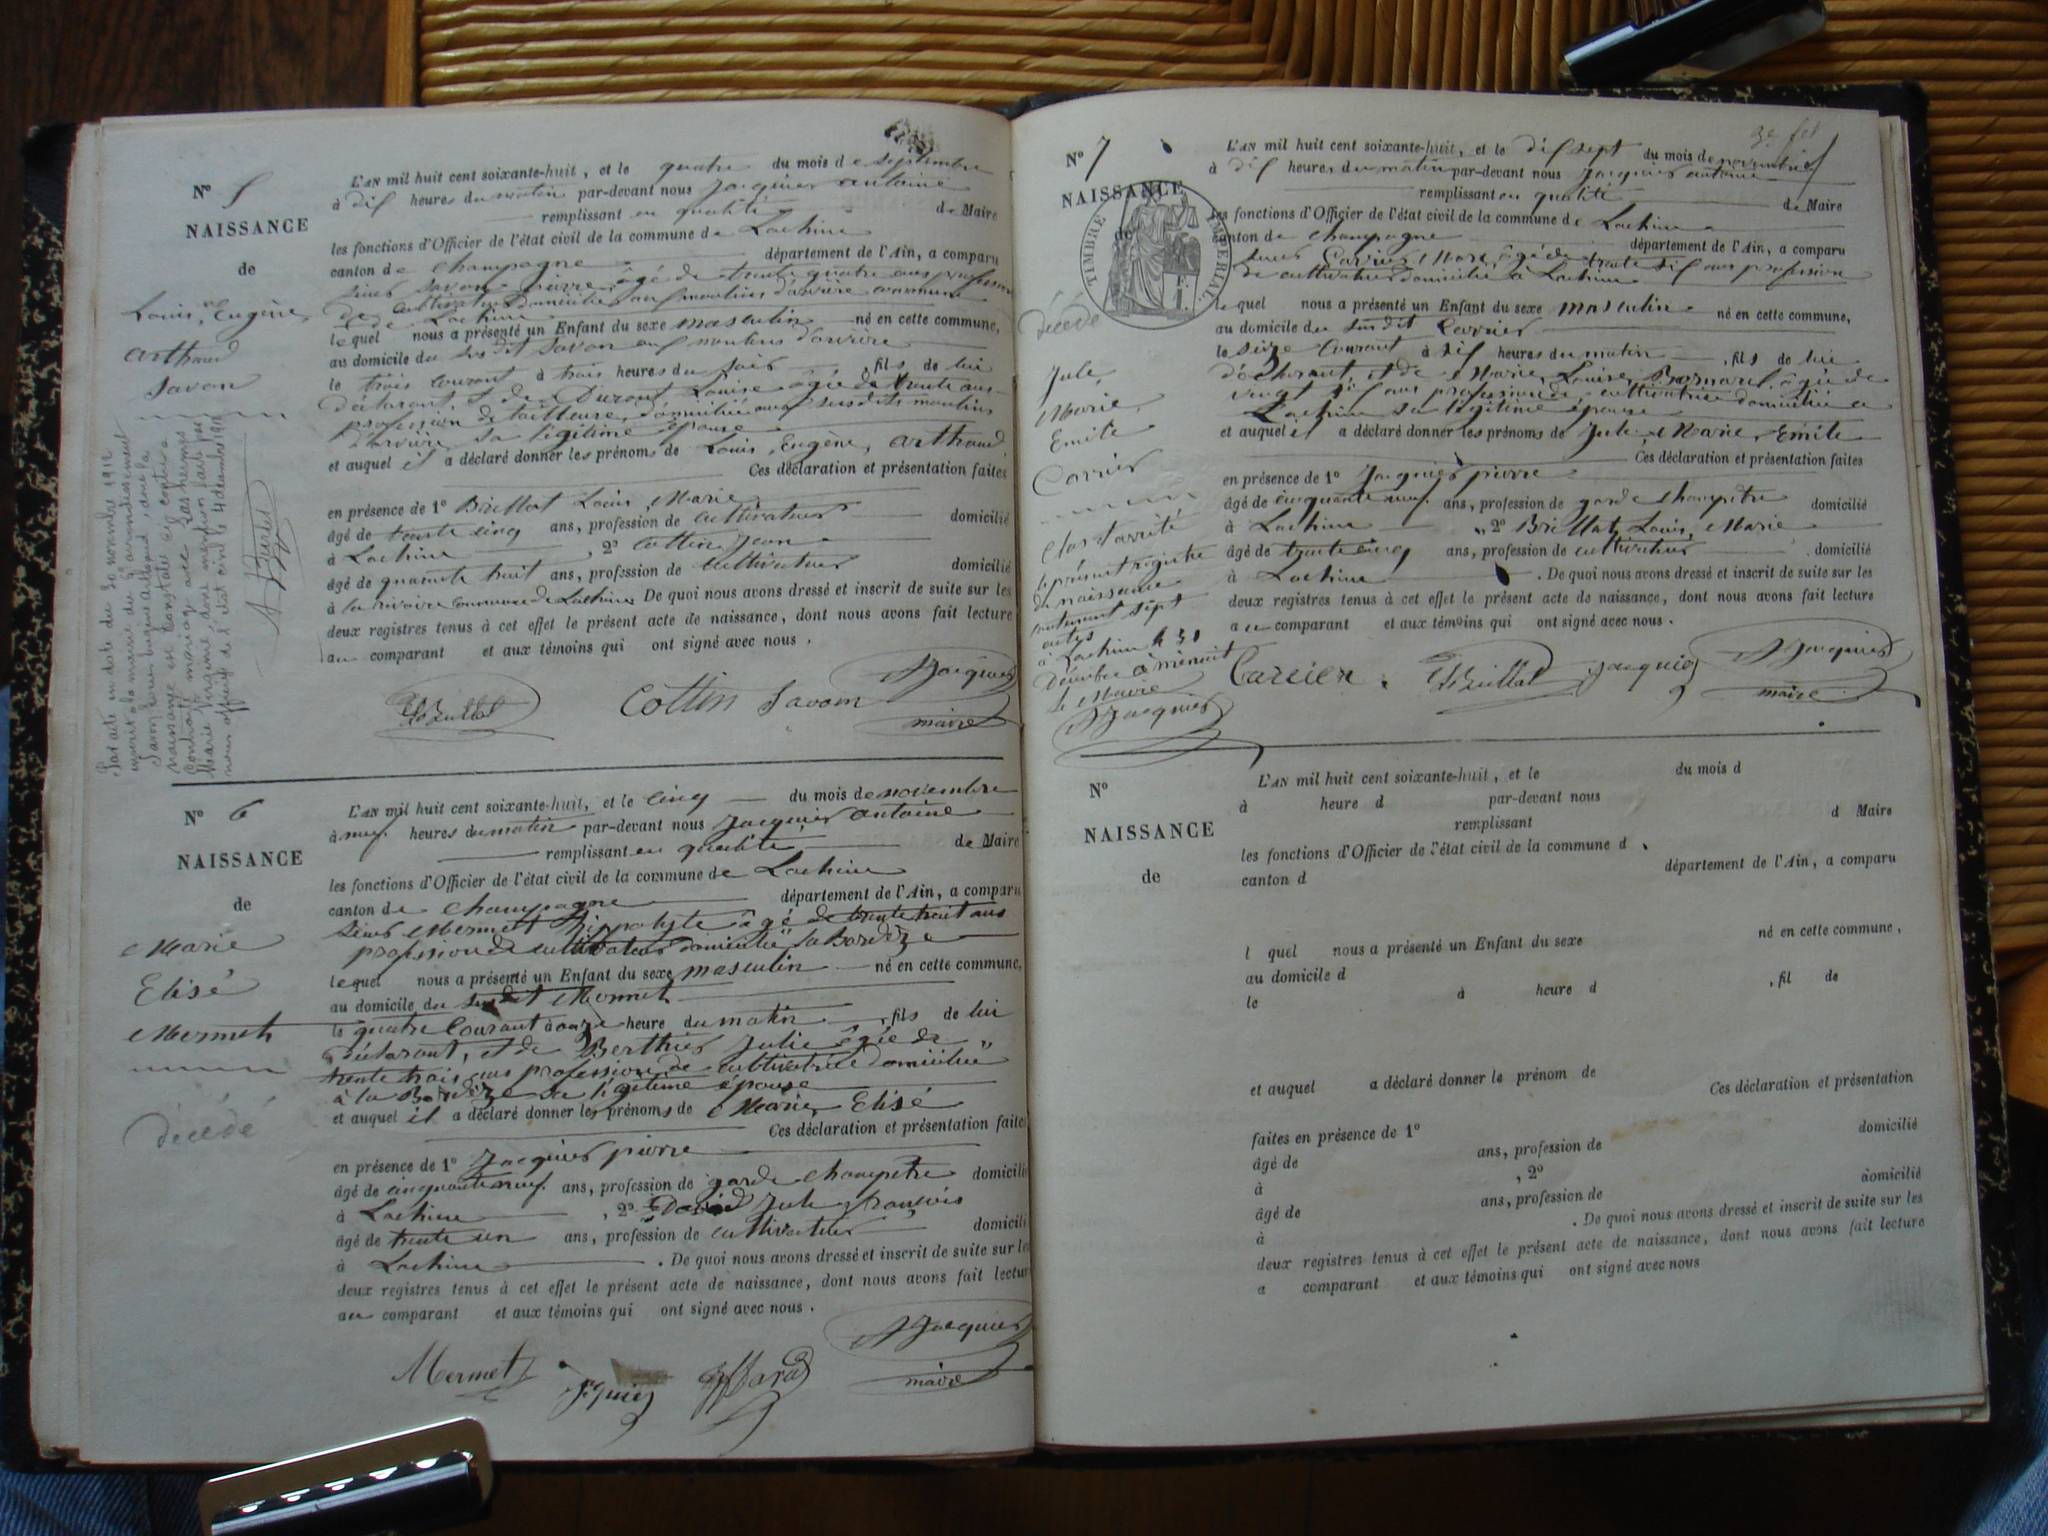 N° 5
NAISSANCE
de
Louis, Eugène,
Arthaud
Savon
Par acte en date du 30 novembre 1912
inscrit à la mairie du arrondissement
Savon Louis Eugène Arthaud, dont la
naissance est constatée ci-contre a
contracté mariage avec
Marie Virginie dont mention faite par
nous officier de l'état civil le 4 décembre 1912
L'AN mil huit cent soixante-huit, et le quatre du mois de septembre
à dix heures du matin par-devant nous Jacquier antoine
remplissant en qualité de Maire
les fonctions d'Officier de l'état civil de la commune de Lochieu
canton de Champagne département de l'Ain, a comparu
sieur Savon pierre âgé de trente quatre ans profession
de cultivateur domicilié aux moulins d'arvière commune
de Lochieu
lequel nous a présenté un Enfant du sexe masculin né en cette commune,
au domicile du susdit Savon aux moulins d'arvière
le trois courant à trois heures du soir, fils de lui
déclarant, et de Durant Louise âgée de trente ans
profession de tailleuse, domiciliée aux susdits moulins
d'arvière sa légitime épouse
et auquel il a déclaré donner les prénoms de Louis, Eugène, Arthaud
Ces déclaration et présentation faites
en présence de 1° Brillat Louis, Marie
âgé de trente cinq ans, profession de cultivateur domicilié
à Lochieu, 2° Cottin Jean
âgé de quarante huit ans, profession de cultivateur domicilié
à la rivoire commune de Lochieu De quoi nous avons dressé et inscrit de suite sur les
deux registres tenus à cet effet le présent acte de naissance, dont nous avons fait lecture
au comparant et aux témoins qui ont signé avec nous.
Brillat Cottin Savon Jacquier
maire
N° 6
NAISSANCE
de
Marie
Elisé
Mermet
décédé
L'AN mil huit cent soixante-huit, et le cinq du mois de novembre
à neuf heures du matin par-devant nous Jacquier antoine
remplissant en qualité de Maire
les fonctions d'Officier de l'état civil de la commune de Lochieu
canton de Champagne département de l'Ain, a comparu
sieur Mermet hippolyte âgé de trente huit ans
profession de cultivateur domicilié
lequel nous a présenté un Enfant du sexe masculin né en cette commune,
au domicile du susdit Mermet
le quatre courant à onze heure du matin, fils de lui
déclarant, et de Berthier Julie âgée de
trente trois ans profession de cultivatrice domiciliée
à la sa légitime épouse
et auquel il a déclaré donner les prénoms de Marie, Elisé
Ces déclaration et présentation faites
en présence de 1° Jacquier pierre
âgé de cinquante neuf ans, profession de garde champêtre domicilié
à Lochieu, 2° Jule françois
âgé de trente un ans, profession de cultivateur domicilié
à Lochieu. De quoi nous avons dressé et inscrit de suite sur les
deux registres tenus à cet effet le présent acte de naissance, dont nous avons fait lecture
au comparant et aux témoins qui ont signé avec nous.
Mermet Jacquier
maire
3e fet
N° 7
NAISSANCE
de
TIMBRE IMPERIAL
décédé
Jule,
Marie,
Emile
Carrier
Clos et arrêté
le présent registre
de naissance
contenant sept
actes
à Lochieu le 31
Décembre à minuit
le Maire
Jacquier
L'AN mil huit cent soixante-huit, et le dix sept du mois de novembre
à dix heures du matin par-devant nous Jacquier antoine
remplissant en qualité de Maire
les fonctions d'Officier de l'état civil de la commune de Lochieu
canton de Champagne département de l'Ain, a comparu
sieur Carrier Marc, âgé de trente six ans profession
de cultivateur domicilié à Lochieu
lequel nous a présenté un Enfant du sexe masculin né en cette commune,
au domicile du susdit Carrier
le seize courant à six heures du matin, fils de lui
déclarant, et de Marie, Louise, Bornarel, âgée de
vingt six ans profession de cultivatrice domiciliée à
Lochieu sa légitime épouse
et auquel il a déclaré donner les prénoms de Jule, Marie, Emile
Ces déclaration et présentation faites
en présence de 1° Jacquier pierre
âgé de cinquante neuf ans, profession de garde champêtre domicilié
à Lochieu, 2° Brillat, Louis, Marie
âgé de trente cinq ans, profession de cultivateur domicilié
à Lochieu. De quoi nous avons dressé et inscrit de suite sur les
deux registres tenus à cet effet le présent acte de naissance, dont nous avons fait lecture
au comparant et aux témoins qui ont signé avec nous.
Carrier. Brillat Jacquier Jacquier
maire
N°
NAISSANCE
de
L'AN mil huit cent soixante-huit, et le du mois d
à heure d par-devant nous
remplissant d Maire
les fonctions d'Officier de l'état civil de la commune d
canton d département de l'Ain, a comparu
l quel nous a présenté un Enfant du sexe né en cette commune,
au domicile d
le à heure d, fil de
et auquel a déclaré donner le prénom de
Ces déclaration et présentation
faites en présence de 1°
âgé de ans, profession de domicilié
à, 2°
âgé de ans, profession de domicilié
à. De quoi nous avons dressé et inscrit de suite sur les
deux registres tenus à cet effet le présent acte de naissance, dont nous avons fait lecture
a comparant et aux témoins qui ont signé avec nous